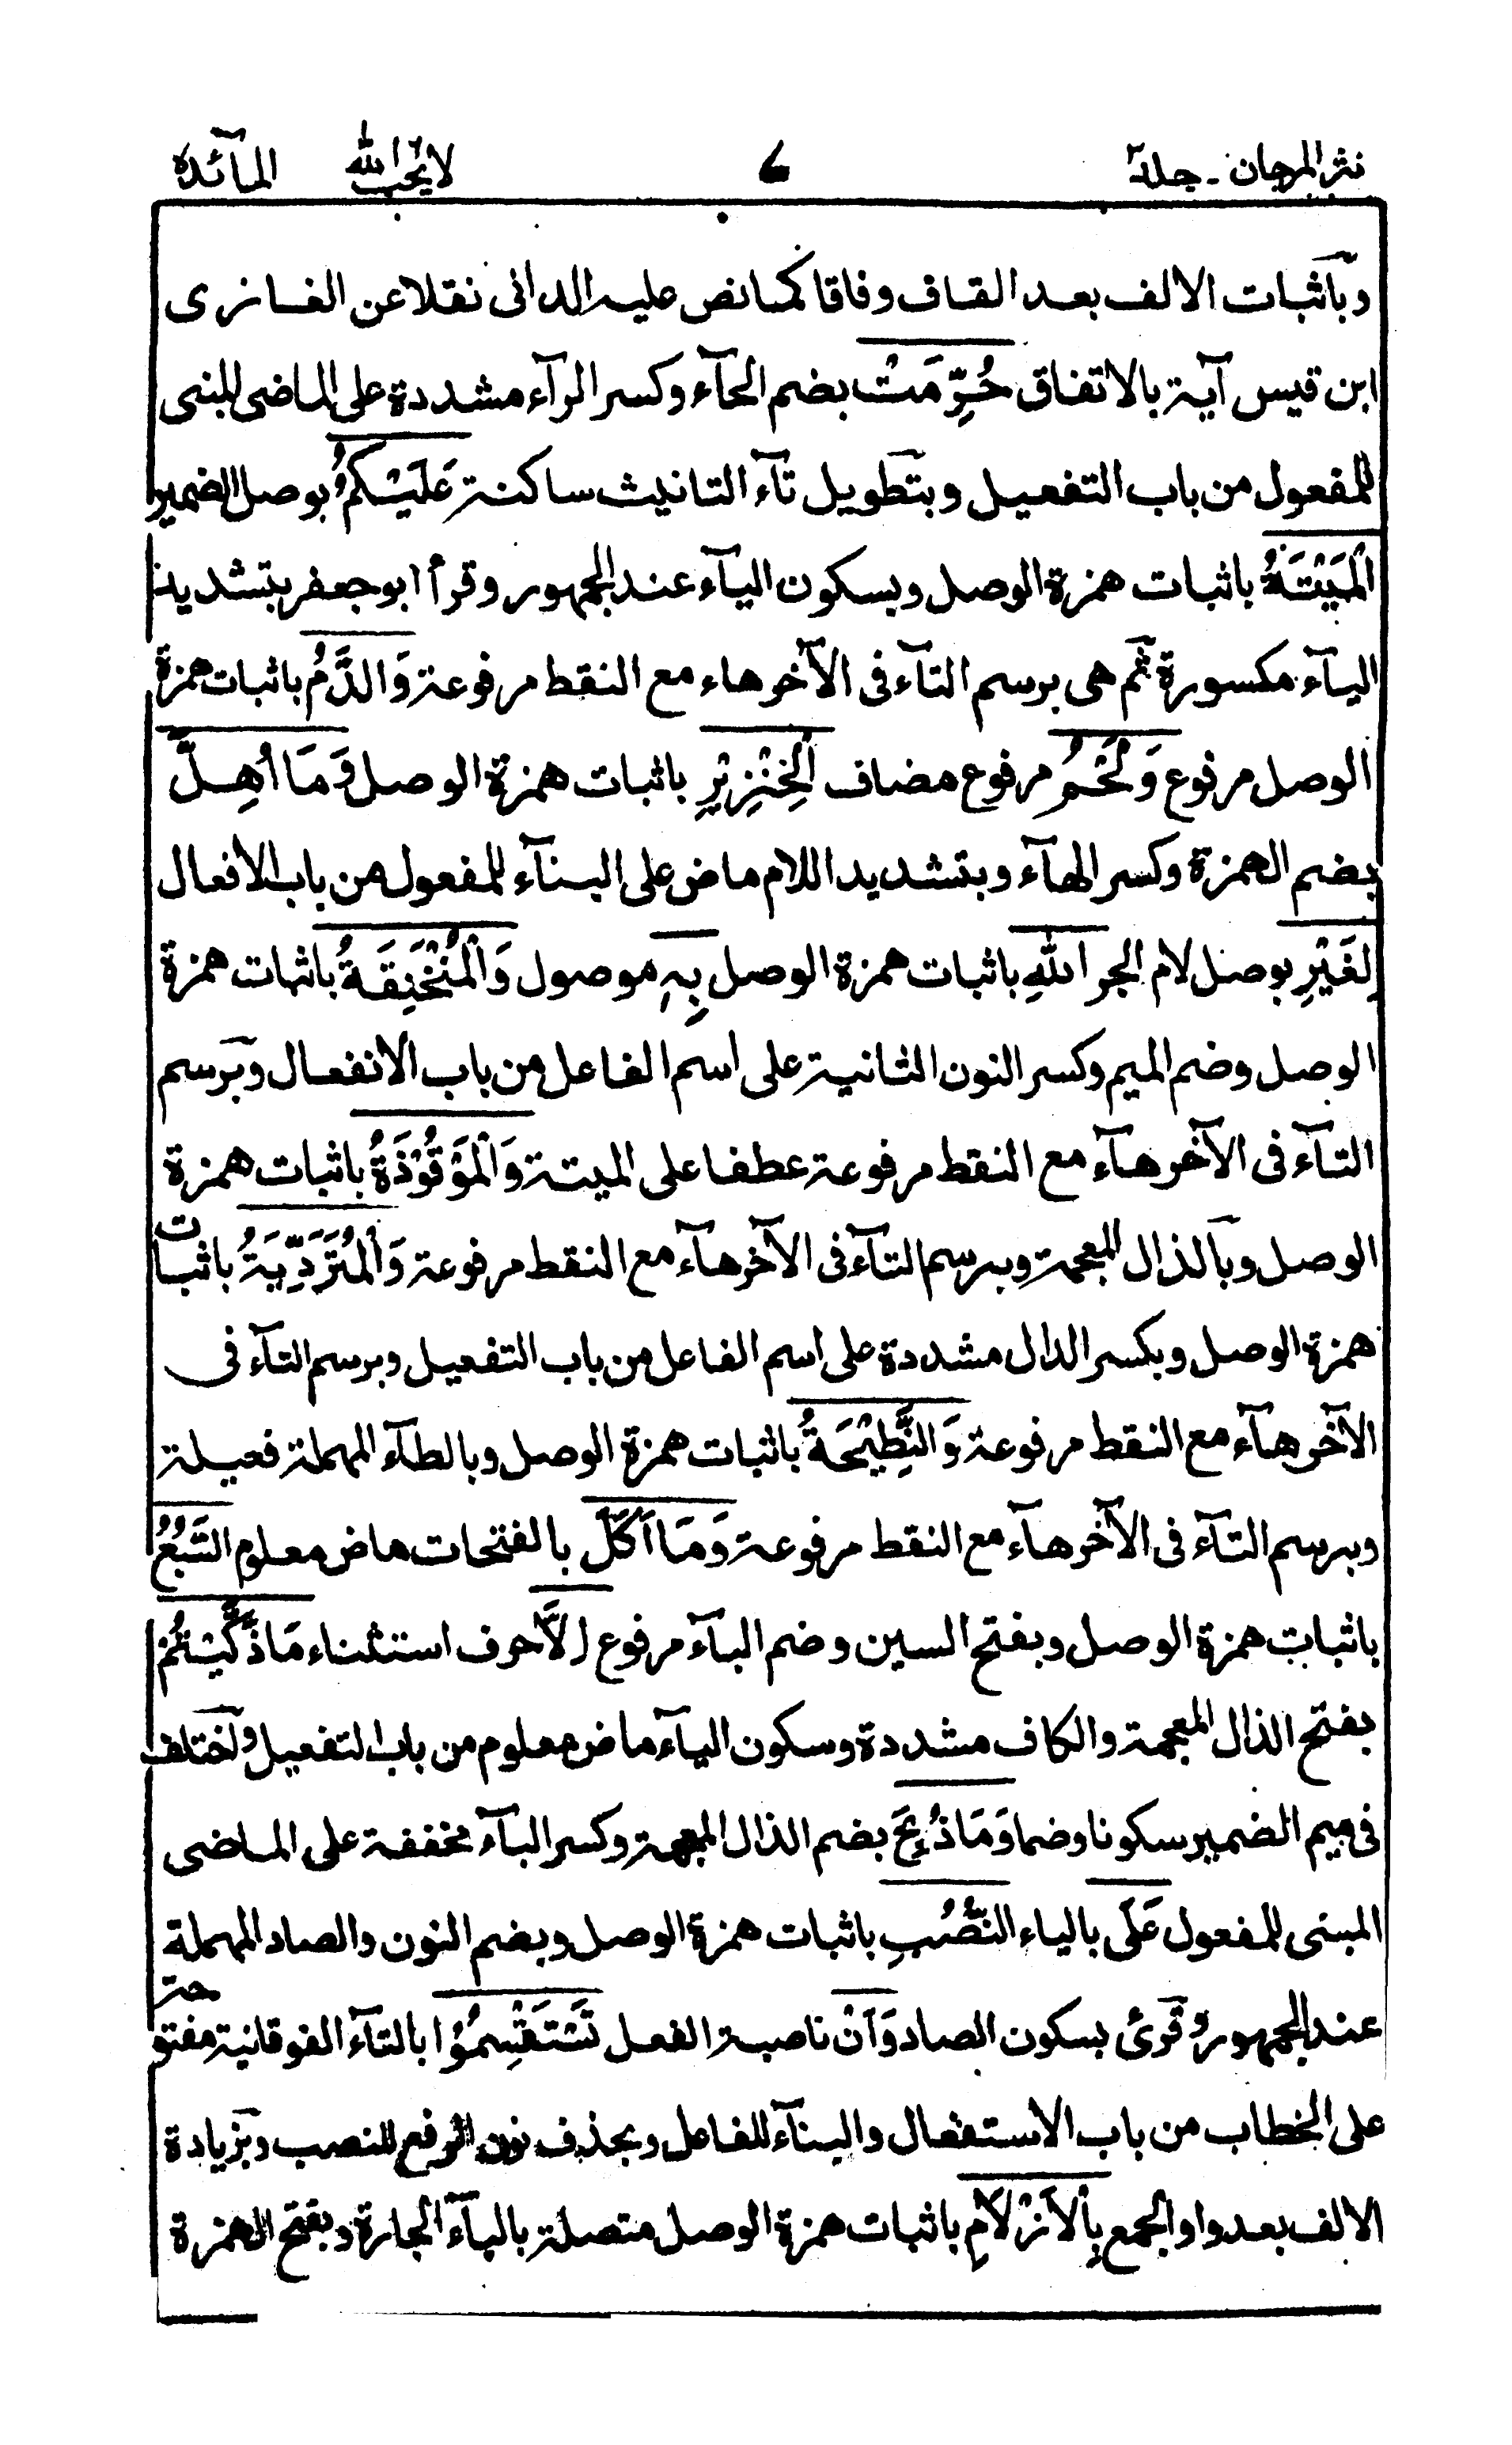 نثر المرجان - جلد ٢ ٧ لا يحب الله المآئدة
وبآثبات الالف بعد القاف وفاقا كما نص عليه الدانى نقلا عن الغازى
ابن قيس آية بالاتفاق حُرِّمَتْ بضم الحآء وكسر الرآء مشددة على الماضى المبنى
للمفعول من باب التفعيل وبتطويل تآء التانيث ساكنة عَلَيْكُمُ بوصل الضمير
الْمَيْتَةُ باثبات همزة الوصل وبسكون اليآء عند الجمهور وقرأ ابو جعفر بتشديد
اليآء مكسورة ثم هى برسم التآء فى الآخر هاء مع النقط مرفوعة وَالدَّمُ باثبات همزة
الوصل مرفوع وَلَحْمُ مرفوع مضاف الْخِنْزِيْرِ باثبات همزة الوصل وَمَا اُهِلَّ
بضم الهمزة وكسر الهآء وبتشديد اللام ماض على البنآء للمفعول من باب الافعال
لِغَيْرِ بوصل لام الجر اللهِ باثبات همزة الوصل بِهٖ موصول وَالْمُنْخَنِقَةُ باثبات همزة
الوصل وضم الميم وكسر النون الثانية على اسم الفاعل من باب الانفعال وبرسم
التآء فى الآخر هآء مع النقط مرفوعة عطفا على الميتة وَالْمَوْقُوْذَةُ باثبات همزة
الوصل وبالذال المعجمة وبرسم التآء فى الآخر هآء مع النقط مرفوعة وَالْمُتَرَدِّيَةُ باثبات
همزة الوصل وبكسر الدال مشددة على اسم الفاعل من باب التفعيل وبرسم التآء فى
الآخر هآء مع النقط مرفوعة وَالنَّطِيْحَةُ باثبات همزة الوصل وبالطآء المهملة فعيلة
وبرسم التآء فى الآخر هآء مع النقط مرفوعة وَمَا اَكَلَ بالفتحات ماض معلوم السَّبُعُ
باثبات همزة الوصل وبفتح السين وضم البآء مرفوع اِلَّا حرف استثناء مَا ذَكَّيْتُمْ
بفتح الذال المعجمة والكاف مشددة وسكون اليآء ماض معلوم من باب التفعيل واختلف
فى ميم الضمير سكونا وضما وَمَا ذُبِحَ بضم الذال المعجمة وكسر البآء مخففة على الماضى
المبنى للمفعول عَلَى بالياء النُّصُبِ باثبات همزة الوصل وبضم النون والصاد المهملة
عند الجمهور وقرئ بسكون الصاد وَاَنْ ناصبة الفعل تَسْتَقْسِمُوْا بالتآء الفوقانية مفتوحة
على الخطاب من باب الاستفعال والبنآء للفاعل وبحذف نون الرفع للنصب وبزيادة
الالف بعد واو الجمع بِالْاَزْلَامِ باثبات همزة الوصل متصلة بالبآء الجارة وبفتح الهمزة